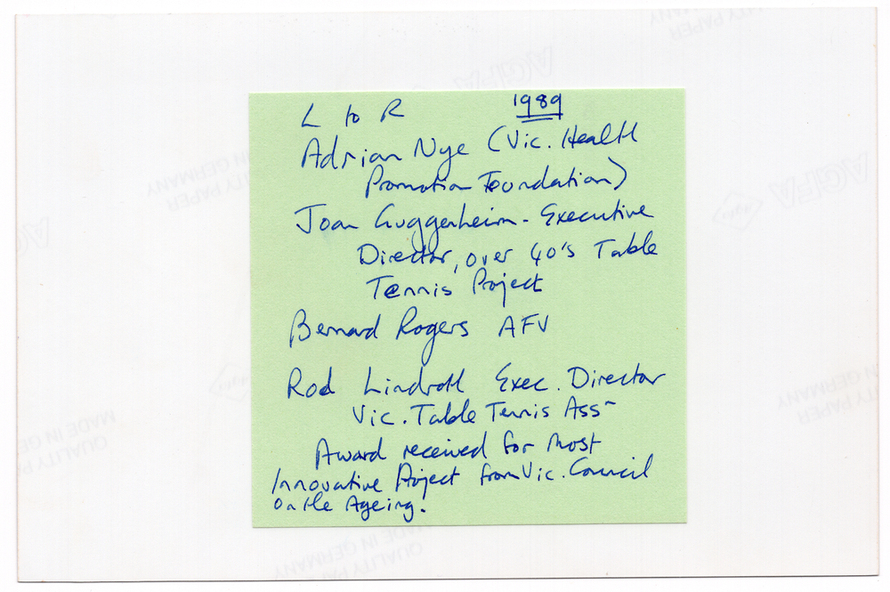 L to R 1989
Adrian Nye (Vic. Health
Promotion Foundation)
Joan Guggenheim - Executive
Director, over 40's Table
Tennis Project
Bernard Rogers AFV
Rod Exec. Director
Vic. Table Tennis Assn
Award received for most
Innovative Project from Vic. Council
on the Ageing.
QUALITY PAPER
MADE IN GERMANY
AGFA